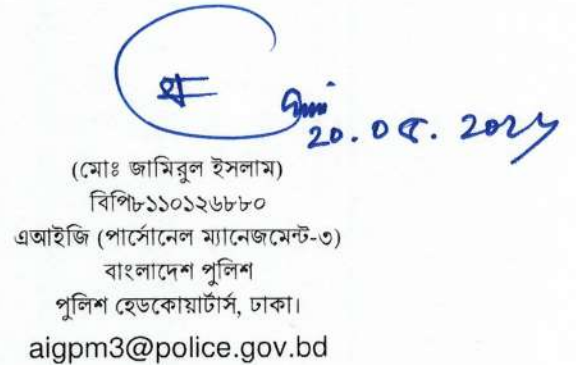 ২০.০৫.২০২৫
(মোঃ জামিরুল ইসলাম)
বিপি৮১১০১২৬৮৮০
এআইজি (পার্সোনেল ম্যানেজমেন্ট-৩)
বাংলাদেশ পুলিশ
পুলিশ হেডকোয়ার্টার্স, ঢাকা।
aigpm3@police.gov.bd